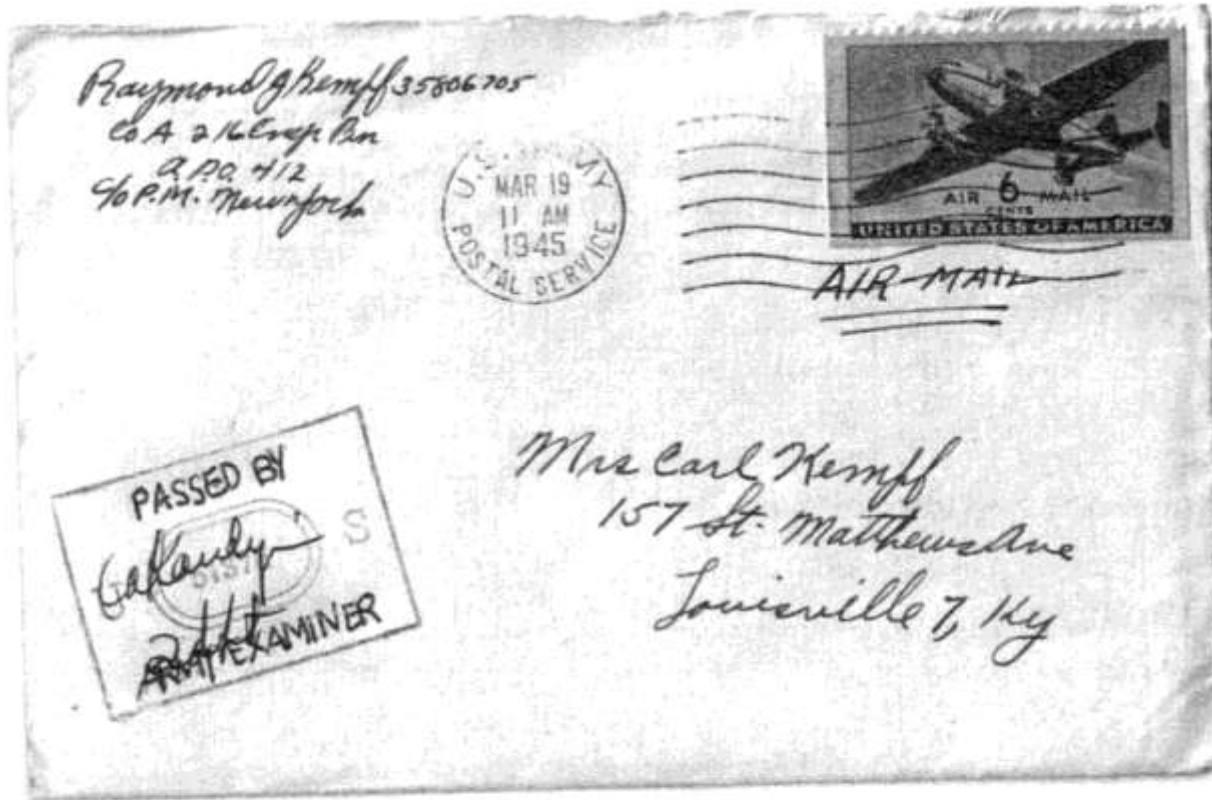 Raymond J Kempf 35806705
Co A 216 Engr Bn
A.P.O. 412
c/o P.M. New York
U.S. ARMY
MAR 19
11 AM
1945
POSTAL SERVICE
AIR 6 MAIL
CENTS
UNITED STATES OF AMERICA
AIR-MAIL
PASSED BY
S
ARMY EXAMINER
Mrs Carl Kempf
157 St. Matthews Ave
Louisville 7, Ky